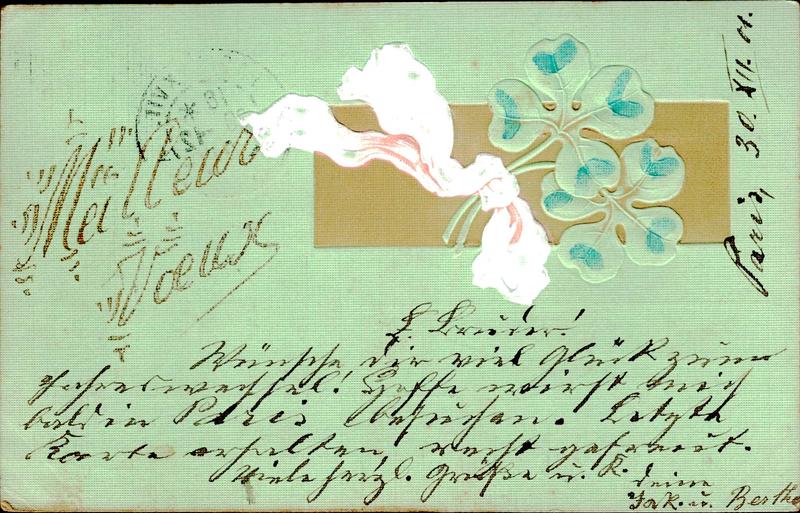 Meilleurs
Voeux
Paris, 30. XII. 01.
L. Bruder!
Wünsche dir viel Glück zum
Jahreswechsel! Hoffe wirst mich
bald in Paris besuchen. Letzte
Karte erhalten, recht gefreut.
Viele herzl. Grüße u. K.
deine
Jak. u. Berthe